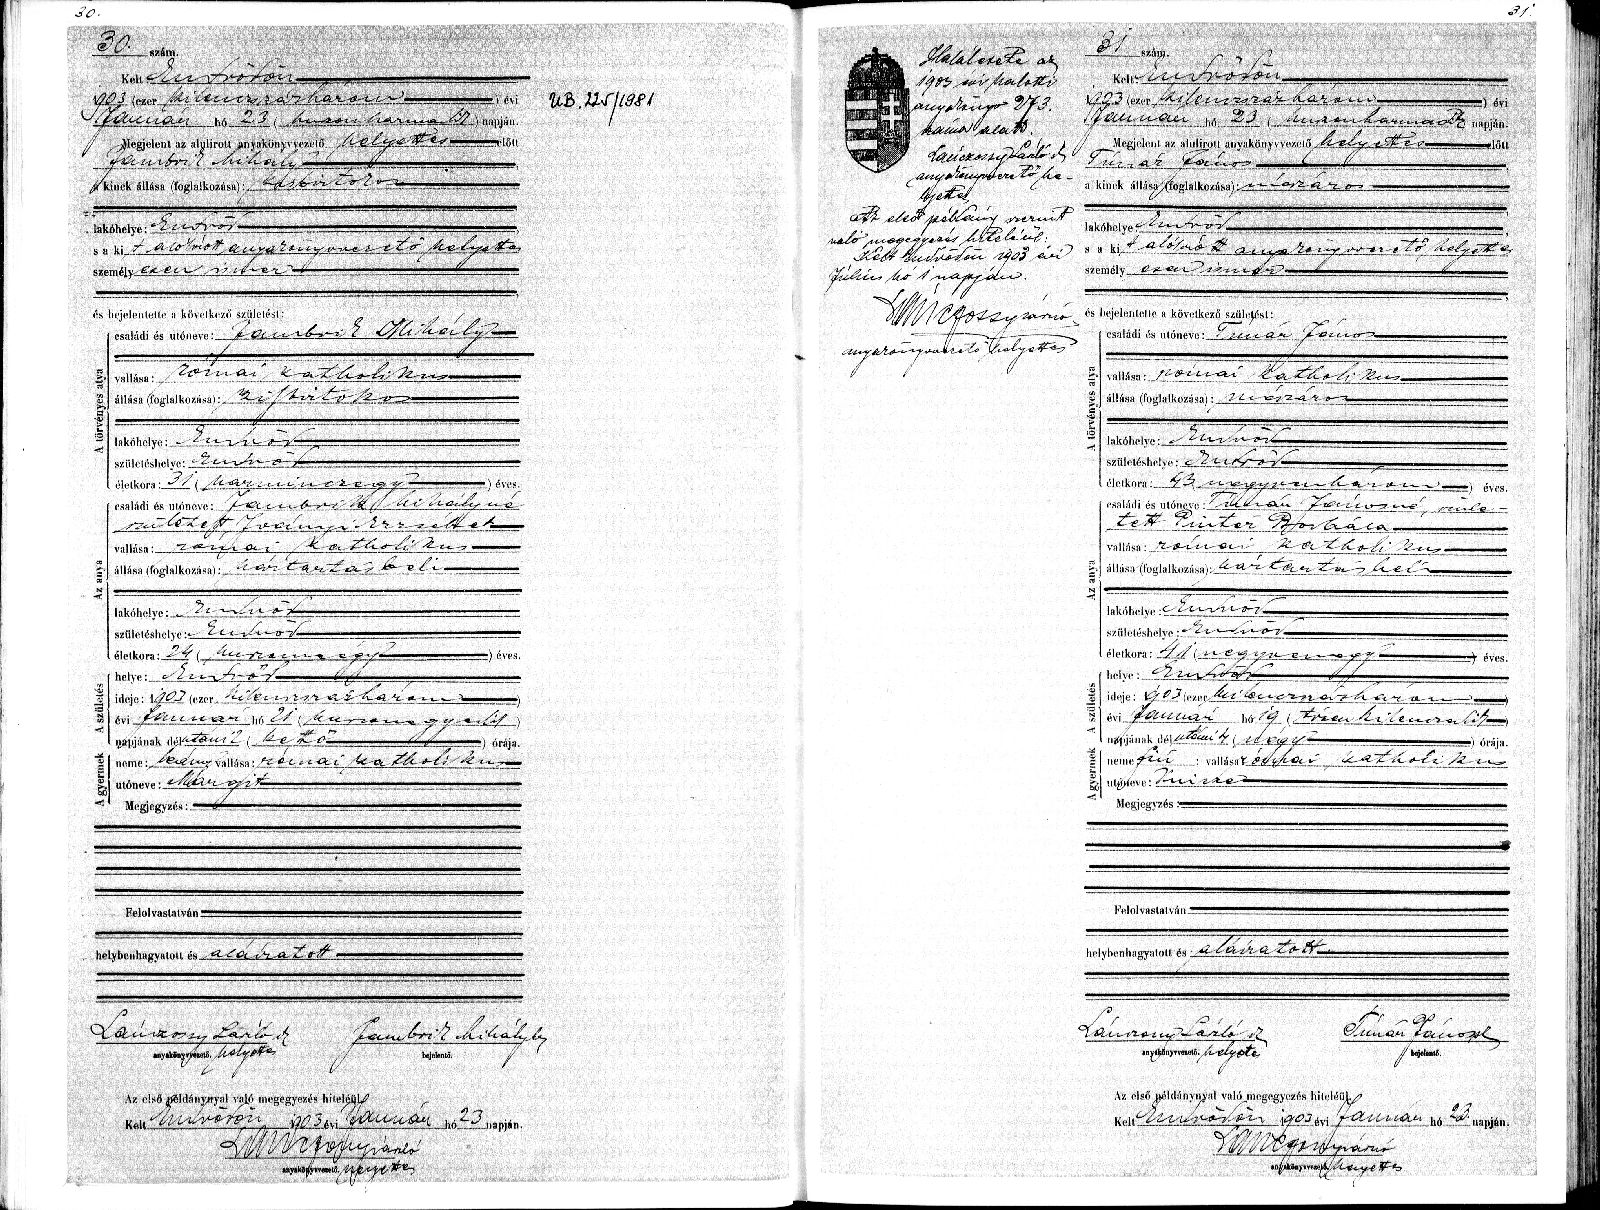 30.
30. szám.
Kelt Endrődön
1903 (ezer kilenczszázhárom) évi
Január hó 23 (huszonharmadik) napján.
Megjelent az alulirott anyakönyvvezető helyettes előtt
Jambrik Mihály
a kinek állása (foglalkozása): kisbirtokos
lakóhelye: Endrőd
s a kit alólírott anyakönyvvezető helyettes
személyesen ismer
és bejelentette a következő születést:
A törvényes atya
családi és utóneve: Jambrik Mihály
vallása: római katholikus
állása (foglalkozása): kisbirtokos
lakóhelye: Endrőd
születéshelye: Endrőd
életkora: 31 (harminczegy) éves.
Az anya
családi és utóneve: Jambrik Mihályné
született Iványi Erzsébet
vallása: római katholikus
állása (foglalkozása): háztartásbeli
lakóhelye: Endrőd
születéshelye: Endrőd
életkora: 24 ( ) éves.
A születés
helye: Endrőd
ideje: 1903 (ezer kilenczszázhárom)
évi Január hó 21 (huszonegyedik)
napjának délutáni 2 (kettő) órája.
A gyermek
neme: leány vallása: római katholikus
utóneve: Margit
Megjegyzés:
Felolvastatván
helybenhagyatott és aláiratott
Lánczossy László Jambrik Mihály
anyakönyvvezető. helyettes bejelentő.
Az első példánynyal való megegyezés hiteléül
Kelt Endrődön 1903 évi Január hó 23 napján.
anyakönyvvezető. helyettes
UB. 225/1981
31.
Halálesete az
1903 évi halotti
anyakönyv 273.
szám alatt.
Lánczossy László
anyakönyvvezető he-
lyettes
Az első példány szerint
való megegyezés hiteléül:
Kelt Endrődön 1903 évi
Július hó 1 napján.
Lánczossy László
anyakönyvvezető helyettes
31 szám.
Kelt Endrődön
1903 (ezer kilenczszázhárom) évi
Január hó 23 (huszonharmadik) napján.
Megjelent az alulirott anyakönyvvezető helyettes előtt
Tímár János
a kinek állása (foglalkozása): mészáros
lakóhelye: Endrőd
s a kit alólírott anyakönyvvezető helyettes
személyesen ismer
és bejelentette a következő születést:
A törvényes atya
családi és utóneve: Tímár János
vallása: római katholikus
állása (foglalkozása): mészáros
lakóhelye: Endrőd
születéshelye: Endrőd
életkora: 43 (negyvenhárom) éves.
Az anya
családi és utóneve: Tímár Jánosné, szüle-
tett Pintér Borbála
vallása: római katholikus
állása (foglalkozása): háztartásbeli
lakóhelye: Endrőd
születéshelye: Endrőd
életkora: 41 (negyvenegy) éves.
A születés
helye: Endrőd
ideje: 1903 (ezer kilenczszázhárom)
évi Január hó 19 (tizenkilenczedik)
napjának délutáni 4 (négy) órája.
A gyermek
neme: fiú vallása: római katholikus
utóneve: Vincze
Megjegyzés:
Felolvastatván
helybenhagyatott és aláiratott
Lánczossy László Tímár János
anyakönyvvezető. helyettes bejelentő.
Az első példánynyal való megegyezés hiteléül
Kelt Endrődön 1903 évi Január hó 23 napján.
anyakönyvvezető. helyettes